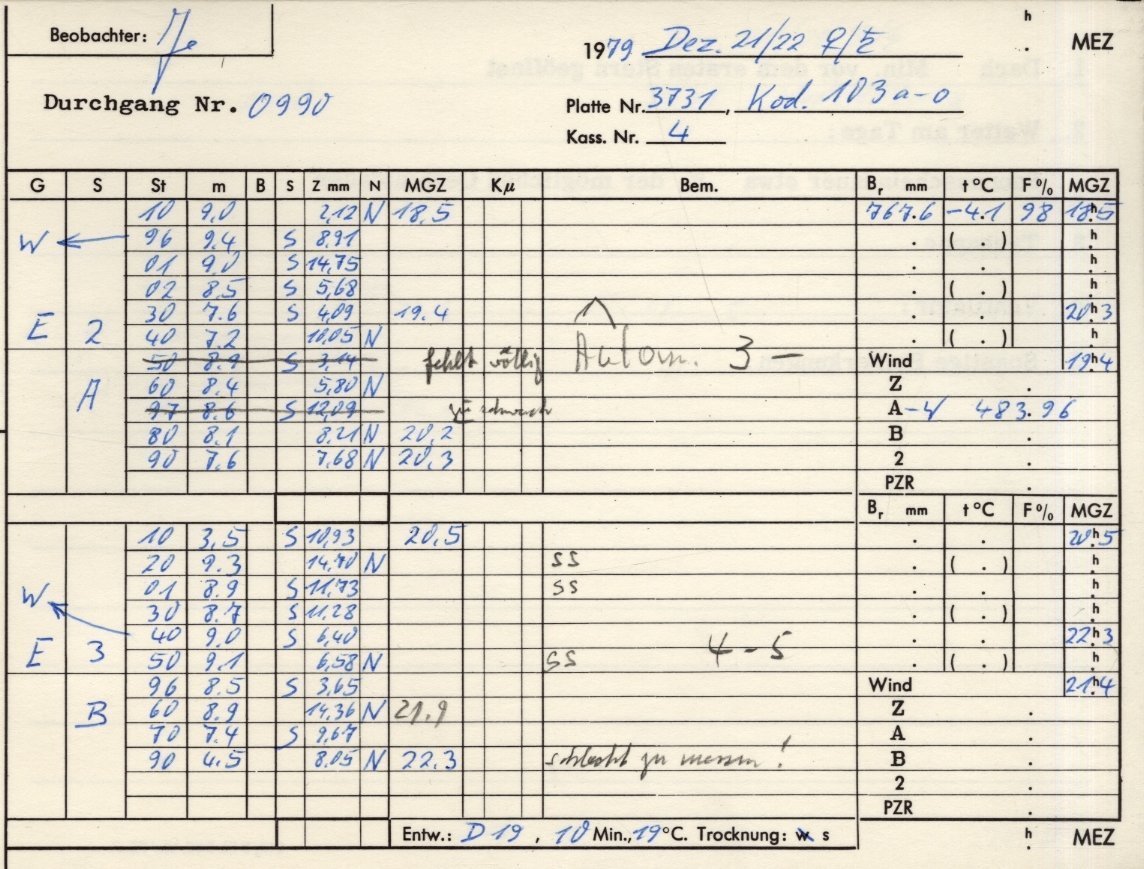 Beobachter: Je
h
1979 Dez. 21/22 f/E . MEZ
Durchgang Nr. 0990
Platte Nr. 3731, Kod. 103a-o
Kass. Nr. 4
G S St m B S Z mm N MGZ Kµ Bem. Br mm t °C F % MGZ
10 9,0 2,12 N 18,5 767.6 -4.1 98 18h5
W 96 9.4 S 8,91 . ( . ) h
01 9,0 S 14,75 . . h
02 8,5 S 5,68 . ( . ) h
30 7.6 S 4,09 19.4 . . 20h3
E 2 40 7.2 10,05 N . ( . ) h
50 8.9 S 3,14 fehlt völlig Autom. 3 — Wind 19h4
A 60 8.4 5,80 N Z .
97 8.6 S 12,09 zu schwach A -4 483.96
80 8.1 8,21 N 20,2 B .
90 7.6 7,68 N 20,3 2 .
PZR .
Br mm t °C F % MGZ
10 3,5 S 10,93 20,5 . . 20h5
20 9.3 14,70 N SS . ( . ) h
W 01 8.9 S 11,73 SS . . h
30 8.7 S 11,28 . ( . ) h
40 9,0 S 6,40 4-5 . . 22h3
E 3 50 9.1 6,58 N SS . ( . ) h
96 8.5 S 3,65 Wind 21h4
B 60 8.9 14,36 N 21.9 Z .
70 7.4 S 9,67 A .
90 4.5 8,05 N 22.3 schlecht zu messen! B .
2 .
PZR .
Entw.: D 19, 10 Min., 19°C. Trocknung: w s h . MEZ